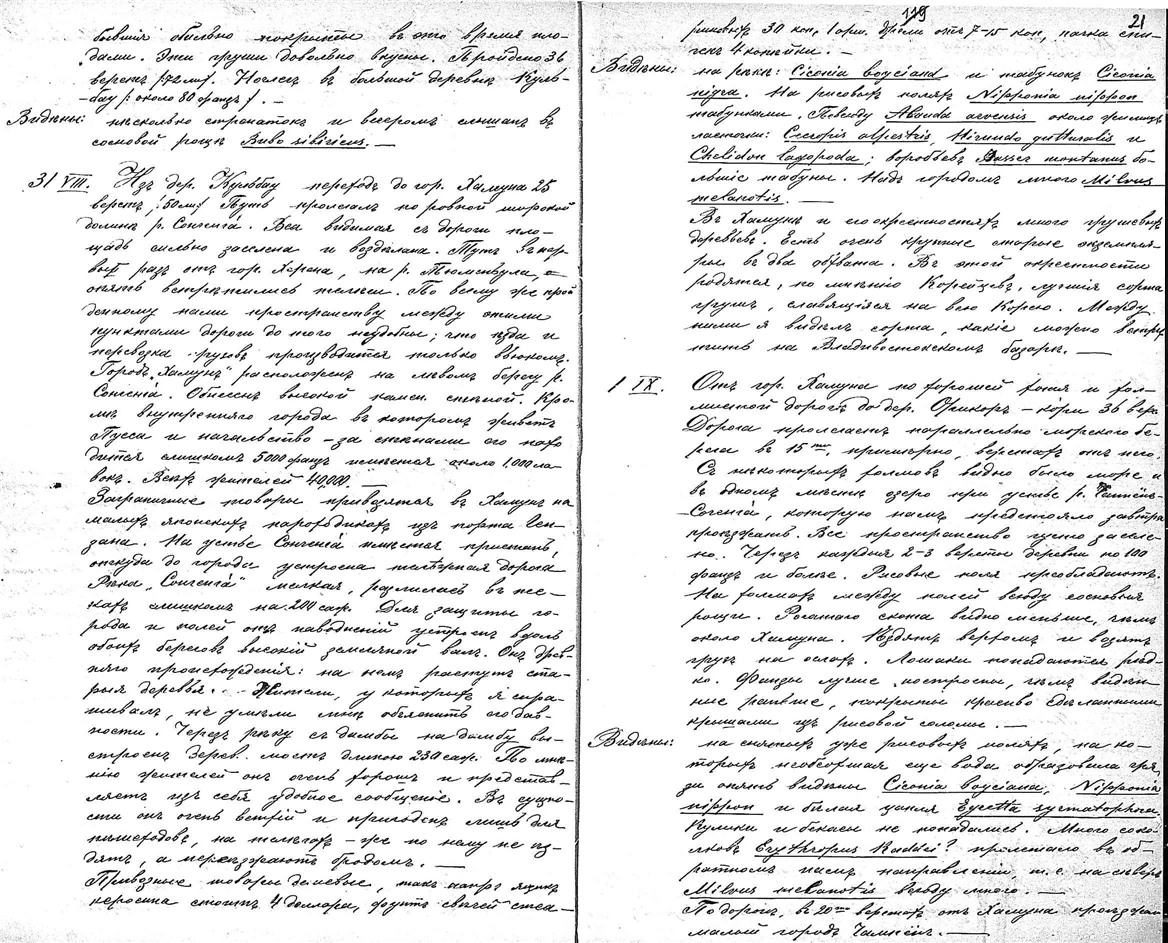 бывшiя обильно покрыты въ это время пло-
дами. Эти груши довольно вкусны. Пройдено 36
верстъ /:72 ли/. Ночлегъ въ большой деревнѣ Куль-
-бау /: около 80 фанзъ /. —
Видѣны: нѣсколько стренатокъ и вечеромъ слышанъ въ
сосновой рощѣ Bubo sibiricus. —
31 VIII. Изъ дер. Кульбау переходъ до гор. Хамуна 25
верстъ /:50 ли/. Путь пролегалъ по ровной широкой
долинѣ р. Сонгенга. Вся видимая съ дороги пло-
щадь сильно заселена и воздѣлана. Тутъ въ пер-
вый разъ отъ гор. Херена, на р. Тюменьула, —
опять встрѣтились телѣги. По всему же прой
денному нами пространству между этими
пунктами дороги до того неудобны, что ѣзда и
перевозка грузовъ производится только вьюкомъ.
Городъ „Хамунъ" расположенъ на лѣвомъ берегу р.
Сонгенга. Обнесенъ высокой камен. стѣной. Кро-
мѣ внутренняго города въ которомъ живетъ
Пусса и начальство — за стѣнами его нахо
дится слишкомъ 5000 фанзъ имѣется около 1,000 ла-
вокъ. Всѣхъ жителей 40,000. —
Заграничные товары привозятся въ Хамунъ на
малыхъ японскихъ пароходикахъ изъ порта Ген-
зана. На устьѣ Сонгенга имѣется пристань,
откуда до города устроена телѣжная дорога
Рѣка „Сонгенга" мелкая, разлилась въ пе-
кахъ слишкомъ на 200 саж. Для защиты го-
рода и полей отъ наводненiй устроенъ вдоль
обоихъ береговъ высокiй земляной валъ. Онъ древ-
няго происхожденiя: на немъ растутъ ста-
рыя деревья. Жители, у которыхъ я спра-
шивалъ, не умѣли мнѣ объяснить его дав-
ности. Черезъ рѣку съ дамбы на дамбу вы-
строенъ дерев. мостъ длиною 230 саж. По мнѣ-
нiю жителей онъ очень хорошъ и представ
ляетъ изъ себя удобное сообщенiе. Въ сущно-
сти онъ очень ветхiй и пригоденъ лишь для
пѣшеходовъ, на телѣгахъ — же по нему не ѣз-
дятъ, а переѣзжаютъ бродомъ. —
Привозные товары дешевые, такъ напр. ящик
керосина стоитъ 4 доллора, фунтъ свѣчей стеа-
119
21
риновыхъ 30 коп, 1 арш. дрели отъ 7-15 коп, пачка спи-
чекъ 4 копѣйки. —
Видѣны: на рѣкѣ: Ciconia boyciana и табунокъ Ciconia
nigra. На рисовыхъ поляхъ Nipponia nippon
табунками, Повсюду Alauda arvensis около жилищъ
ласточки: Cecropis alpestris, Hirundo gutturalis и
Chelidon lagopoda; воробьевъ Passer montanus бо-
льшiе табуны. Надъ городомъ много Milvus
melanotis. —
Въ Хамунѣ и его окрестностяхъ много грушевыхъ
деревьевъ. Есть очень крупные старые экземпля-
ры въ два обхвата. Въ этой окрестности
родятся, по мнѣнiю Корейцевъ, лучшiя сорта
грушъ, славящiяся на всю Корею. Между
ними я видѣлъ сорта, какiе можно встрѣ-
тить на Владивостокскомъ базарѣ. —
1 IX. Отъ гор. Хамуна по хорошей хотя и хол-
мистой дорогѣ до дер. Орикоръ - кори 36 вер.
Дорога пролегаетъ параллельно морскаго бе-
рега въ 15ти, примѣрно, верстахъ отъ него.
Съ нѣкоторыхъ холмовъ видно было море и
въ одномъ мѣстѣ озеро при устьѣ р.
-Согенга, которую намъ предстояло завтра
проѣзжать. Все пространство густо заселе-
но. Черезъ каждыя 2-3 версты деревни по 100
фанзъ и болѣе. Рисовыя поля преобладаютъ.
На холмахъ между полей всюду сосновыя
рощи. Рогатаго скота видно меньше, чѣмъ
около Хамуна. Ѣздятъ верхомъ и возятъ
грузъ на ослахъ. Лошаки попадаются рѣд-
ко. Фанзы лучше построены, чѣмъ видѣн-
ные ранѣше, покрыты красиво сдѣланными
крышами изъ рисовой соломы. —
Видѣны: на снятыхъ уже рисовыхъ поляхъ, на ко-
торыхъ необсохшая еще вода образовала гря-
зи опять видѣны Ciconia boyciana, Nipponia
nippon и бѣлая цапля Egretta
Кулики и бекасы не попадались. Много соко-
ликовъ Erythropus Raddei? пролетало въ об-
ратномъ намъ направленiи, т. е. на сѣверъ
Milvus melanotis всюду много. —
По дорогѣ, въ 20ти верстахъ отъ Хамуна проѣзжали
малый городъ Чампенъ. —